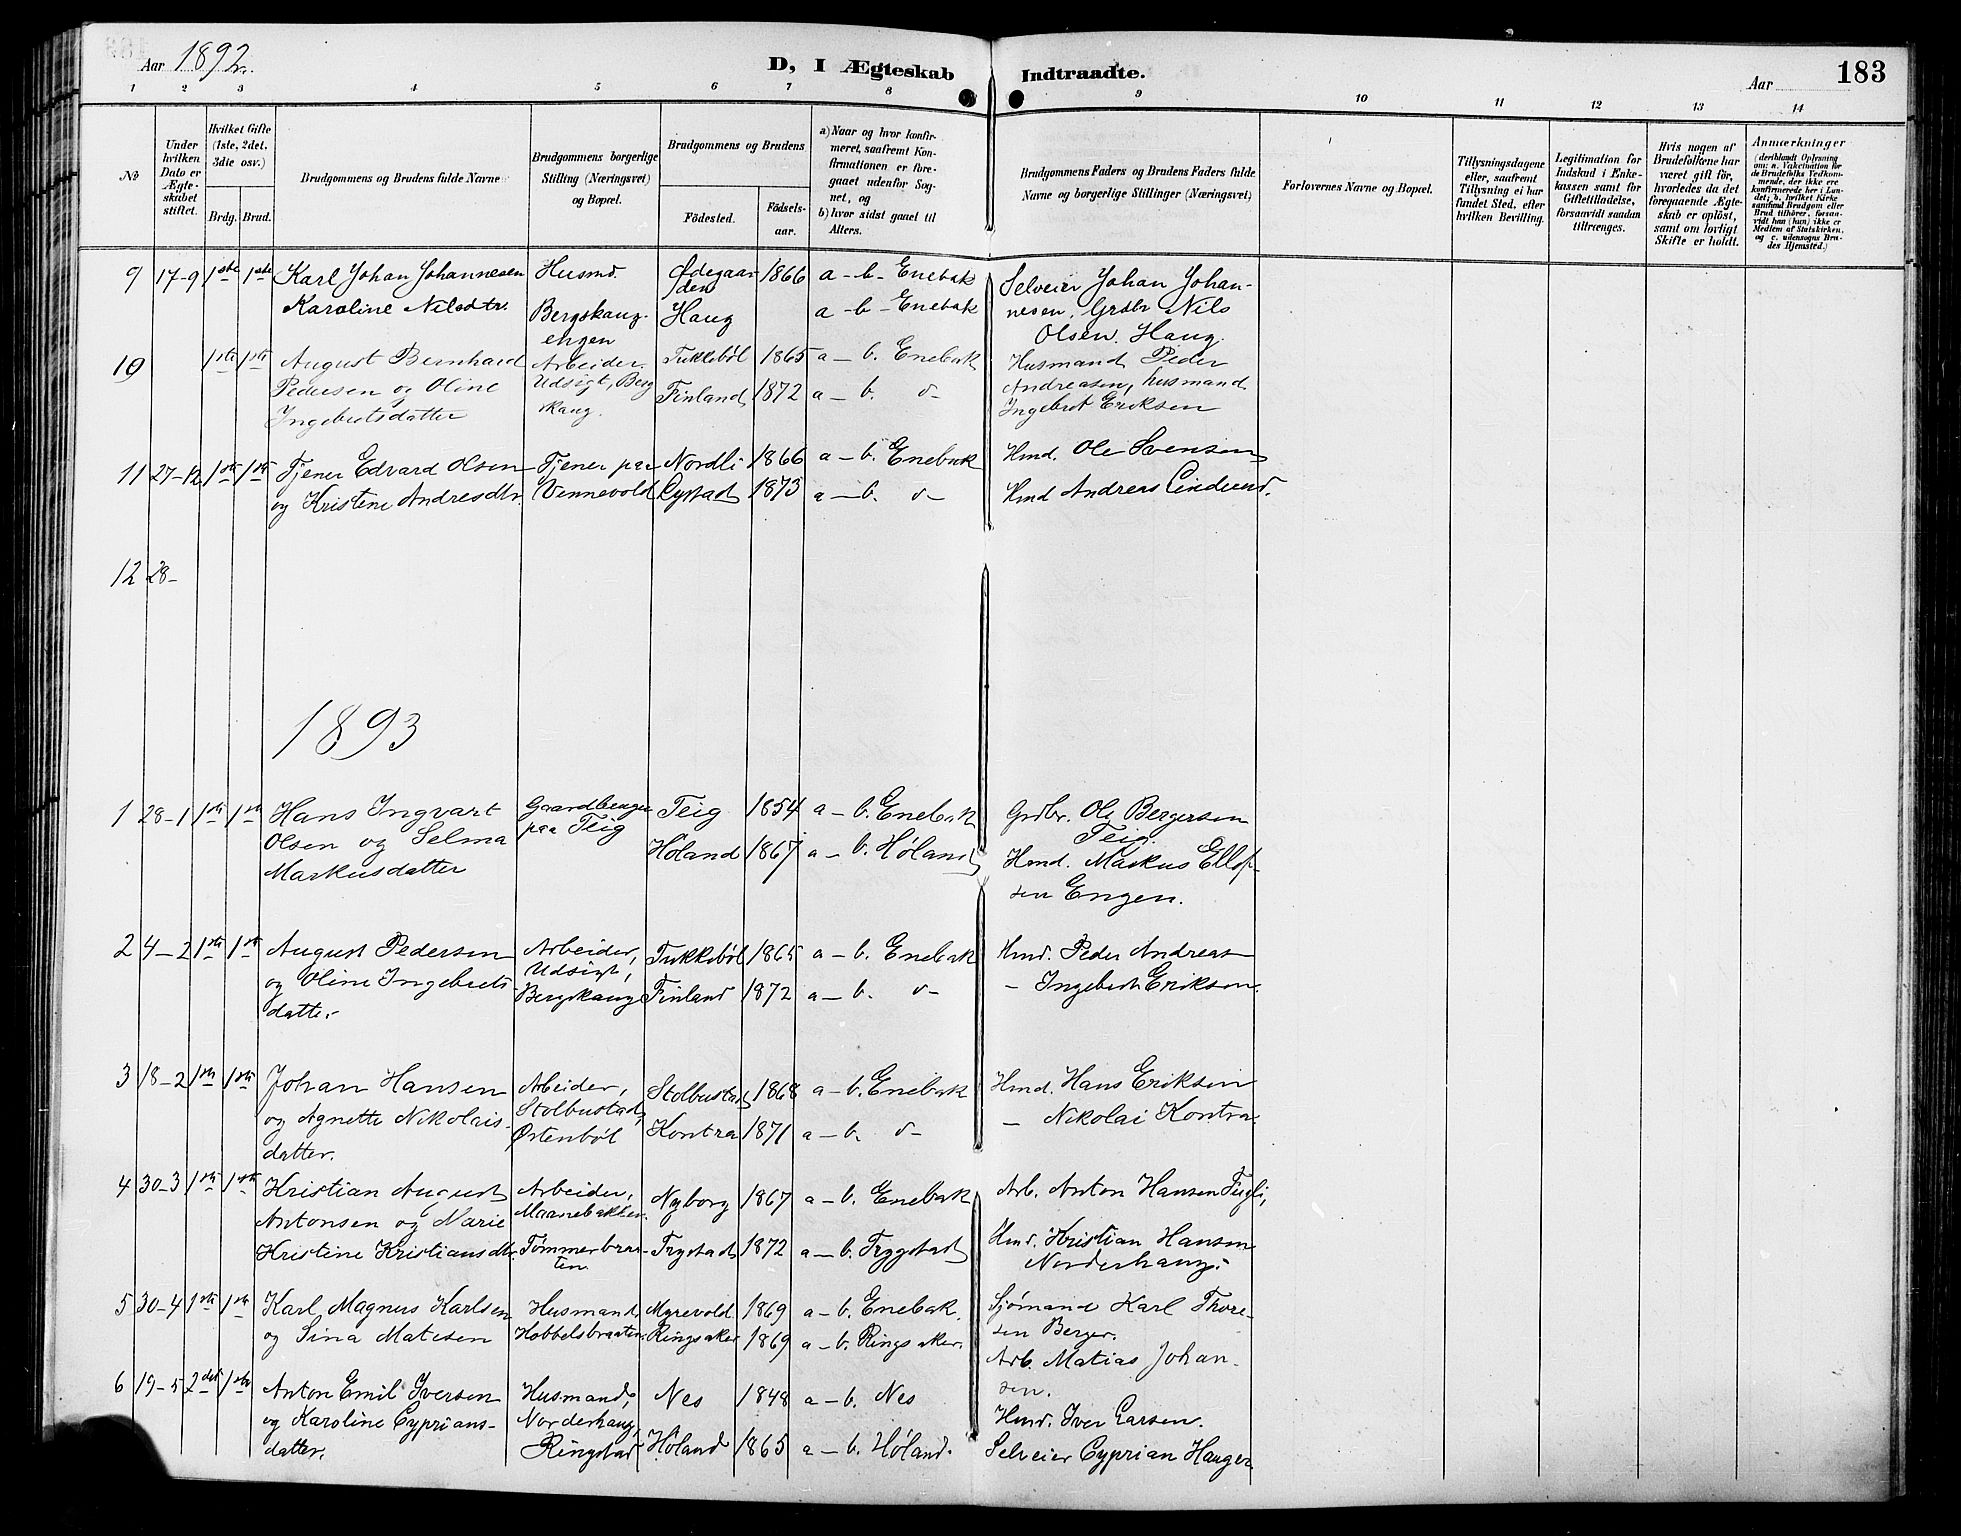 Aar 1892.
D, I Ægteskab Indtraadte.
Aar
183
1 2 3 4 5 6 7 8 9 10 11 12 13 14
No
Under hvilken Dato er Ægteskabet stiftet.
Hvilket Gifte (1ste, 2det, 3die osv.)
Brdg. Brud.
Brudgommens og Brudens fulde Navne
Brudgommens borgerlige Stilling (Næringsvei) og Bopæl.
Brudgommens og Brudens
Födested.
Födsels-aar.
a) Naar og hvor konfirmeret, saafremt Konfirmationen er foregaaet udenfor Sognet, og
b) hvor sidst gaaet til Alters.
Brudgommens Faders og Brudens Faders fulde Navne og borgerlige Stillinger (Næringsvei)
Forlovernes Navne og Bopæl.
Tillysningsdagene eller, saafremt Tillysning ei har fundet Sted, efter hvilken Bevilling.
Legitimation for Indskud i Enkekassen samt for Giftetilladelse, forsaavidt saadan tiltrænges.
Hvis nogen af Brudefolkene har været gift før, hvorledes da det foregaaende Ægteskab er oplöst, samt om lovligt Skifte er holdt.
Anmærkninger
(deriblandt Oplysning om: a. Vakcination for de Brudefolks Vedkommende, der ikke ere konfirmerede her i Landet; b. hvilket Kirkesamfund Brudgom eller Brud tilhörer, forsaavidt han (hun) ikke er Medlem af Statskirken, og c. udensogns Brudes Hjemsted.)
9 17-9 1ste 1ste Karl Johan Johannesen Husmd. Ødegaarden 1866 a-b- Enebak Selveier Johan Johan-
Karoline Nilsdtr. Bergskaug-engen Haug a-b- Enebak nesen, Grdbr Nils
Olsen Haug.
10 1ste 1ste August Bernhard Arbeider. Tukkebøl 1865 a-b. Enebak Husmand Peder
Pedersen og Oline Udsigt, Berg Finland 1872 a-b. d- Andreasen, husmand
Ingebretsdatter skaug. Ingebret Eriksen
11 27-12 1ste 1ste Tjener Edvard Olsen Tjener paa Nordli 1866 a-b. Enebak Hmd. Ole Svensen
og Kristine Andreasdtr. Vennevold Lystad 1873 a-b. d- Hmd Andreas Linderud.
12 28-
1893
1 28-1 1ste 1ste Hans Ingvart Gaardbruger Teig 1854 a-b. Enebak Grdbr. Ole Bergersen
Olsen og Selma paa Teig Høland 1867 a-b. Høland Teig.
Markusdatter Hmd. Markus Ellef-
sen Engen.
2 4-2 1ste 1ste August Pedersen Arbeider, Tukkebøl 1865 a-b. Enebak Hmd. Peder Andreas
og Oline Ingebrets Udsigt, Finland 1872 a-b. d- - Ingebret Eriksen.
datter Bergskaug
3 18-2 1ste 1ste Johan Hansen Arbeider, Stolbustad 1868 a-b. Enebak Hmd. Hans Eriksen
og Agnette Nikolais- Stolbustad, Kontra 1871 a-b. d- - Nikolai Kontra.
datter. Østenbøl
4 30-3 1ste 1ste Kristian August Arbeider, Nyborg 1867 a-b. Enebak Arb. Anton Hansen Fugli,
Antonsen og Marie Maanebakken. Hmd. Kristian Hansen
Kristine Kristiansdtr. Tømmerbraaten. Trystad 1872 a-b. Trygstad Norderhaug.
5 30-4 1ste 1ste Karl Magnus Karlsen Husmand Myrevold. 1869 a-b. Enebak. Sjømand Karl Thore-
og Sina Matisen Hobbelsbraaten. Ringsaker 1869 a-b. Ringsaker. sen Berger.
Arb. Matias Johan-
sen.
6 19-5 2det 1ste Anton Emil Iversen Husmand, Nes 1848 a-b. Nes Hmd. Iver Larsen.
og Karoline Cyprians- Norderhaug, Høland 1865 a-b. Høland. Selveier Cyprian Hauger
datter. Ringstad